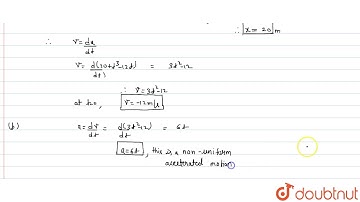 ∴ x = 20 m
∴ v = dx/dt
v = d(20+t³-12t)/dt = 3t²-12
∴ v = 3t²-12
at t=0, v = -12 m/s
(b) a = dv/dt = d(3t²-12)/dt = 6t
a = 6t, this is a non-uniform
accelerated motion
doubtnut